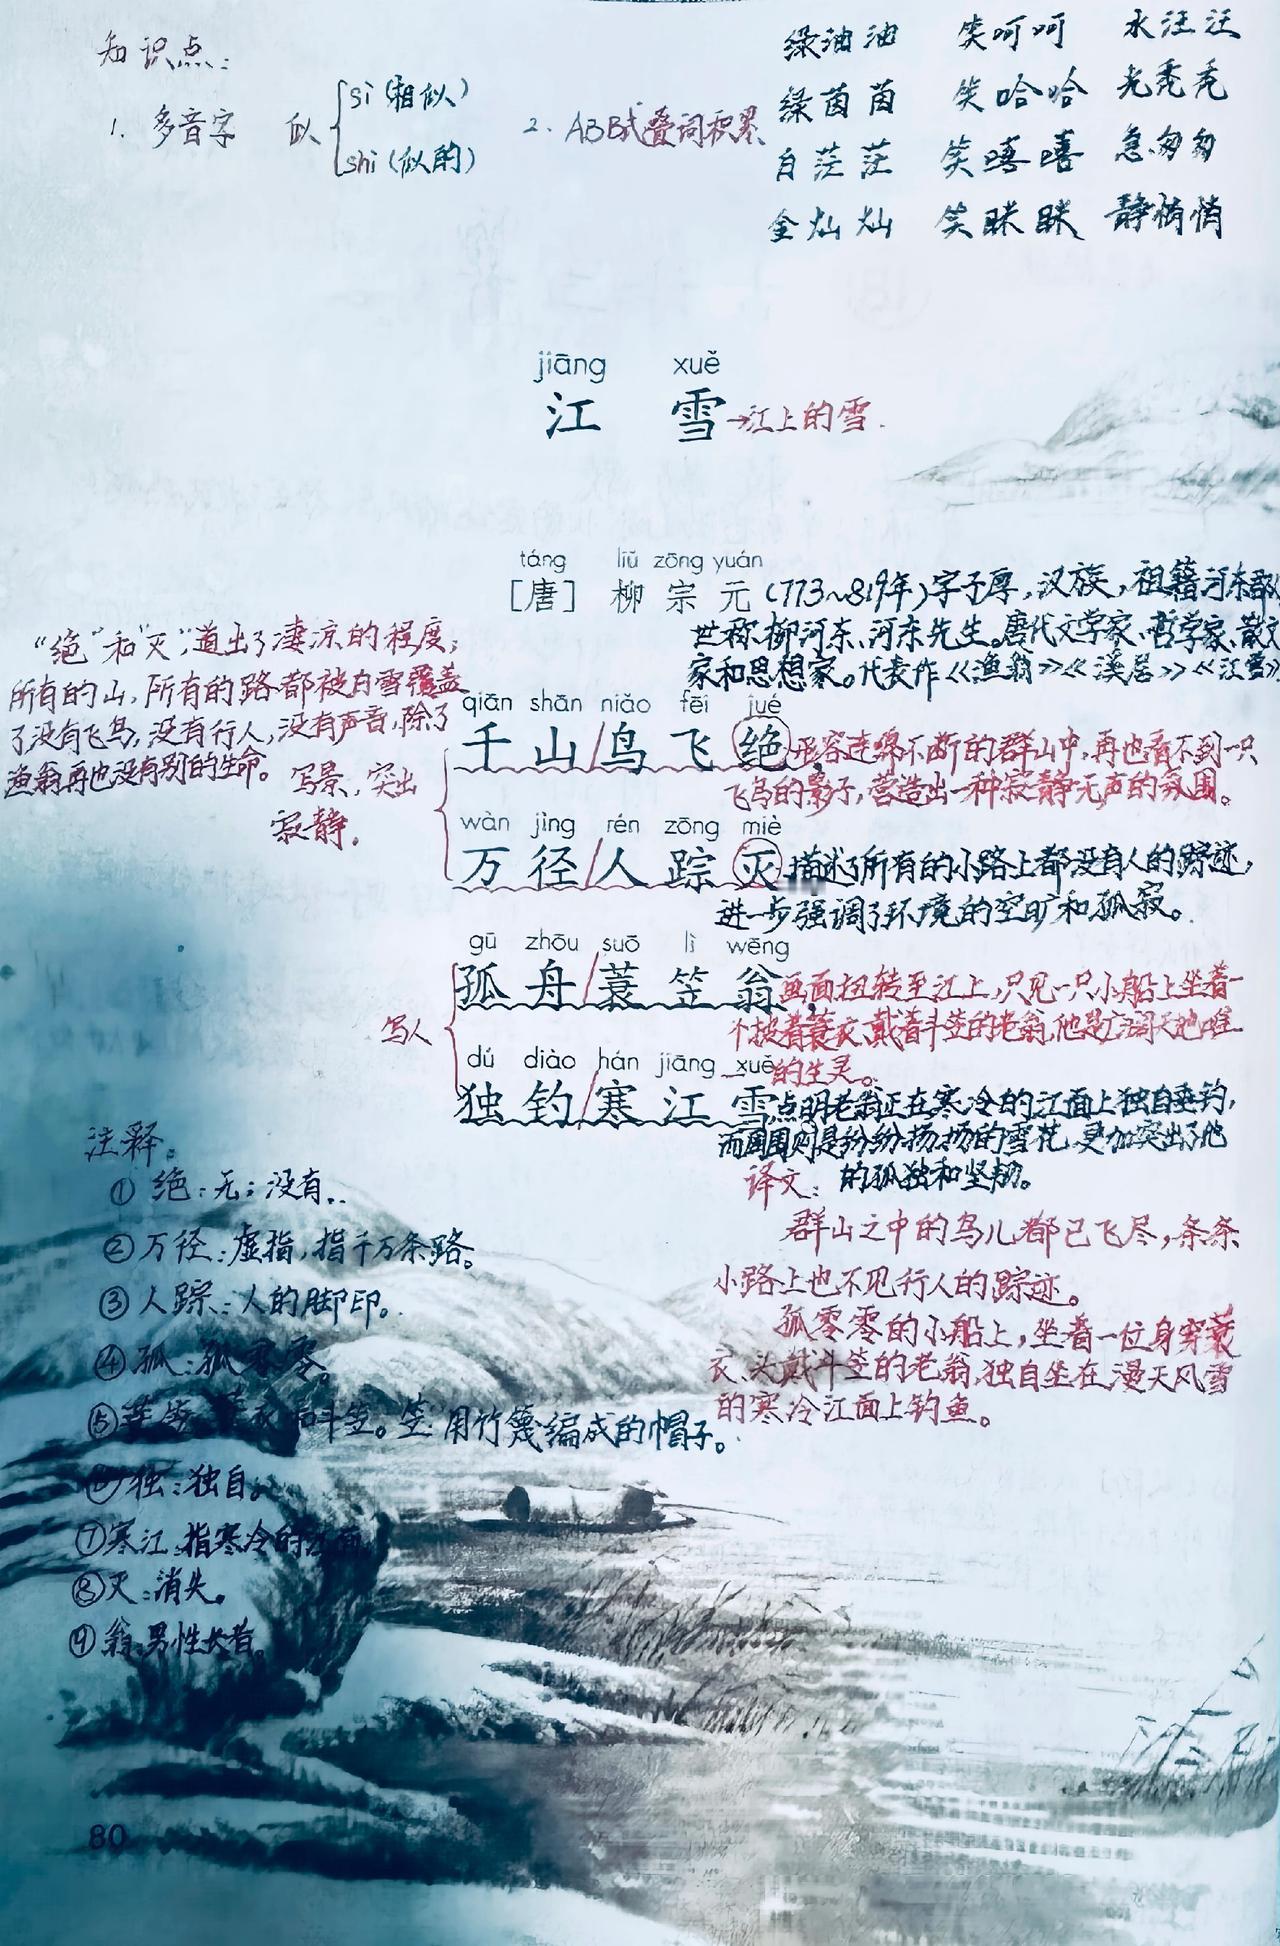 知识点：
1. 多音字 似 sì (相似)
shì (似的)
2. ABB式叠词积累
绿油油 笑呵呵 水汪汪
绿茵茵 笑哈哈 光秃秃
白茫茫 笑嘻嘻 急匆匆
金灿灿 笑眯眯 静悄悄
jiāng xuě
江 雪 →江上的雪.
táng liǔ zōng yuán
[唐] 柳 宗 元 (773~819年)字子厚，汉族，祖籍河东郡
世称柳河东、河东先生。唐代文学家、哲学家、散文
家和思想家。代表作《渔翁》《溪居》《江雪》
"绝"和"灭"，道出了凄凉的程度；
所有的山，所有的路都被白雪覆盖
了没有飞鸟，没有行人，没有声音，除了
渔翁再也没有别的生命。
写景，突出
寂静。
qiān shān niǎo fēi jué
千山/鸟飞绝，
形容连绵不断的群山中，再也看不到一只
飞鸟的影子，营造出一种寂静无声的氛围。
wàn jìng rén zōng miè
万径/人踪灭
描述了所有的小路上都没有人的踪迹，
进一步强调了环境的空旷和孤寂。
写人
gū zhōu suō lì wēng
孤舟/蓑笠翁，
画面扭转至江上，只见一只小船上坐着一
个披着蓑衣、戴着斗笠的老翁，他是广阔天地唯一
的生灵。
dú diào hán jiāng xuě
独钓/寒江雪
点明老翁正在寒冷的江面上独自垂钓，
而周围则是纷纷扬扬的雪花，更加突出了他
的孤独和坚韧。
译文：
群山之中的鸟儿都已飞尽，条条
小路上也不见行人的踪迹。
孤零零的小船上，坐着一位身穿蓑
衣、头戴斗笠的老翁，独自坐在漫天风雪
的寒冷江面上钓鱼。
注释。
①绝：无；没有..
②万径：虚指，指千万条路。
③人踪：人的脚印。
④孤：孤零零。
⑤蓑笠：蓑衣和斗笠。笠：用竹篾编成的帽子。
⑥独：独自。
⑦寒江：指寒冷的江面
⑧灭：消失。
⑨翁：男性长者。
80